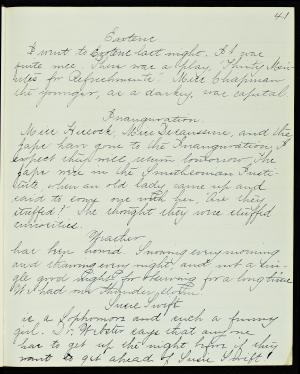 41
Exoteric
I went to Exoteric last night. It was
quite nice. There was a play, "Thirty Min-
utes for Refreshments". Miss Chapman
the younger, as a darkey, was capital.
Inauguration.
Miss Hiscock, Miss Dieaussure, and the
Japs have gone to the Inauguration. I
expect they will return tomorrow. The
Japs were in the Smithsonian Insti-
tute, when an old lady came up and
said to some one with her, "Are they
stuffed?" She thought they were stuffed
curiosities.
Weather
has been horrid. Snowing every morning
and thawing every night, and not a sin-
gle good for a long time
We had one thunder storm.
Susie Swift
is a sophomore and such a funny
girl. Dr. Webster says that any one
has to get up the night before if they
want to get ahead of Susie Swift!